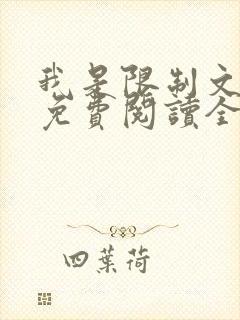 我是限制文
免費閱讀全
四葉荷